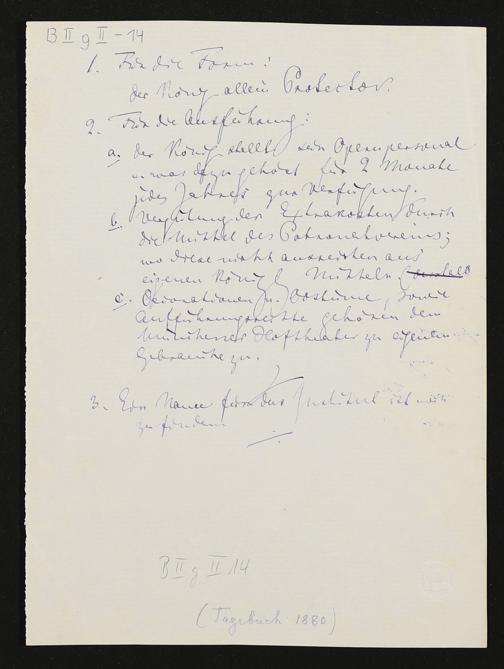 B II g II - 14
1. Für die Form:
der König allein Protector.
2. Für die Ausführung:
a. der König stellt sein Opernpersonal
u. was dazu gehört für 2 Monate
jedes Jahres zur Verfügung.
b. Vergütung der Extrakosten durch
die Mittel des Patronatvereins;
wo diese nicht ausreichen aus
eigenen Königl. Mitteln
c. Decorationen u. Costüme, sowie
Aufführungsrechte gehören dem
Münchener Hoftheater zu eigenem
Gebrauche zu.
3. Ein Name für das Institut ist
zu finden.
B II g II 14
(Tagebuch 1880)